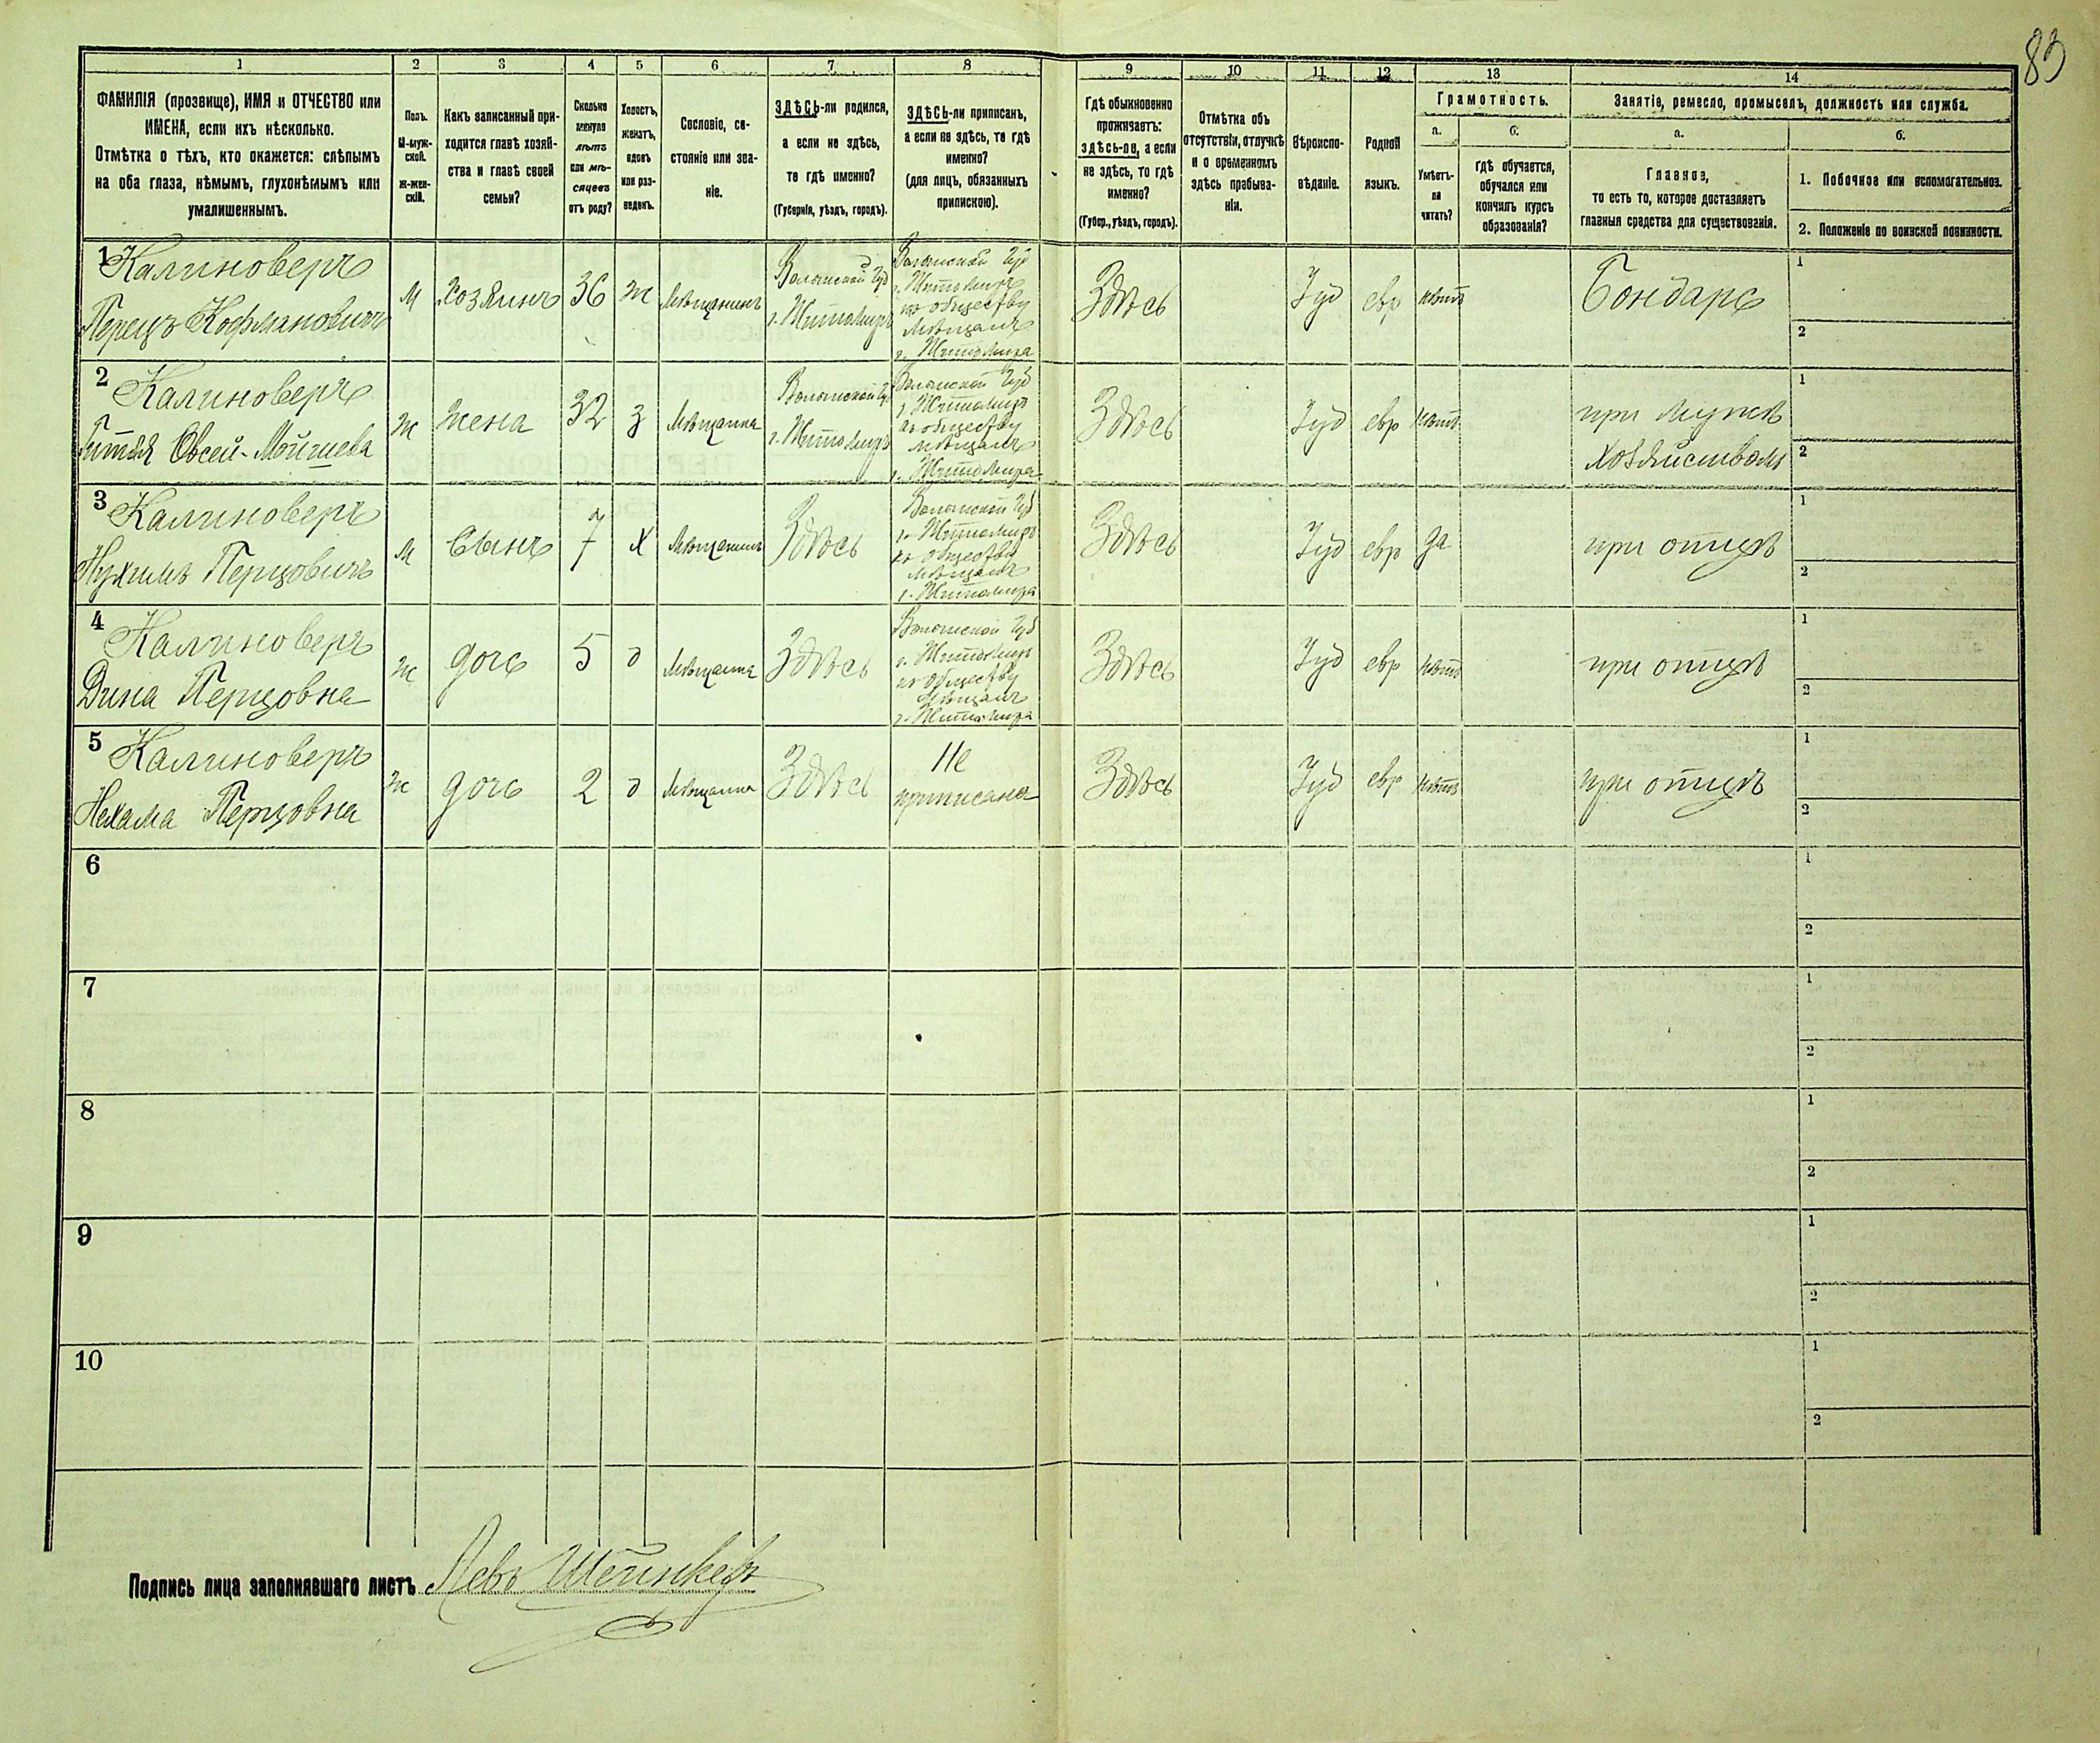 83
1 2 3 4 5 6 7 8 9 10 11 12 13 14
ФАМИЛІЯ (прозвище), ИМЯ и ОТЧЕСТВО или
ИМЕНА, если ихъ нѣсколько.
Отмѣтка о тѣхъ, кто окажется: слѣпымъ
на оба глаза, нѣмымъ, глухонѣмымъ или
умалишеннымъ.
Полъ.
М-муж-
ской.
Ж-жен-
скій.
Какъ записанный при-
ходится главѣ хозяй-
ства и главѣ своей
семьи?
Сколько
минуло
лѣтъ
или мѣ-
сяцевъ
отъ роду?
Холостъ,
женатъ,
вдовъ
или раз-
веденъ.
Сословіе, со-
стояніе или зва-
ніе.
ЗДѢСЬ-ли родился,
а если не здѣсь,
то гдѣ именно?
(Губернія, уѣздъ, городъ).
ЗДѢСЬ-ли приписанъ,
а если не здѣсь, то гдѣ
именно?
(для лицъ, обязанныхъ
припискою).
Гдѣ обыкновенно
проживаетъ:
здѣсь-ли, а если
не здѣсь, то гдѣ
именно?
(Губер., уѣздъ, городъ).
Отмѣтка объ
отсутствіи, отлучкѣ
и о временномъ
здѣсь пребыва-
ніи.
Вѣроиспо-
вѣданіе.
Родной
языкъ.
Грамотность.
а.
Умѣетъ-
ли
читать?
б.
Гдѣ обучается,
обучался или
кончилъ курсъ
образованія?
Занятіе, ремесло, промыселъ, должность или служба.
а.
Главное,
то есть то, которое доставляетъ
главныя средства для существованія.
б.
1. Побочное или вспомогательное.
2. Положеніе по воинской повинности.
1 Калиноверъ
Перецъ Кофмановичъ
М
хозяинъ
36
ж
Мѣщанинъ
Волынской Губ
г. Житомиръ
Волынской Губ
г. Житомиръ
къ обществу
Мѣщанъ
г. Житомира
Здѣсь
Іуд
евр
нѣтъ
Бондарь
1
2
2 Калиноверъ
Гитля Овсей-Мойшева
Ж
жена
32
з
Мѣщанка
Волынской Гу.
г. Житомиръ
Волынской Губ
г. Житомиръ
къ обществу
мѣщанъ
г. Житомира
Здѣсь
Іуд
евр
нѣтъ
при мужѣ
хозяйствомъ
1
2
3 Калиноверъ
Нухимъ Перцовичъ
М
Сынъ
7
Х
Мѣщанинъ
Здѣсь
Волынской Губ
г. Житомиръ
къ обществу
мѣщанъ
г. Житомира
Здѣсь
Іуд
евр
да
при отцѣ
1
2
4 Калиноверъ
Дина Перцовна
Ж
дочь
5
д
Мѣщанка
Здѣсь
Волынской Губ
г. Житомиръ
къ обществу
Мѣщанъ
г. Житомира
Здѣсь
Іуд
евр
нѣтъ
при отцѣ
1
2
5 Калиноверъ
Нехама Перцовна
Ж
дочь
2
д
Мѣщанка
Здѣсь
Не
приписана
Здѣсь
Іуд
евр
нѣтъ
при отцѣ
1
2
6
1
2
7
1
2
8
1
2
9
1
2
10
1
2
Подпись лица заполнявшаго листъ Левъ Шейнкеръ